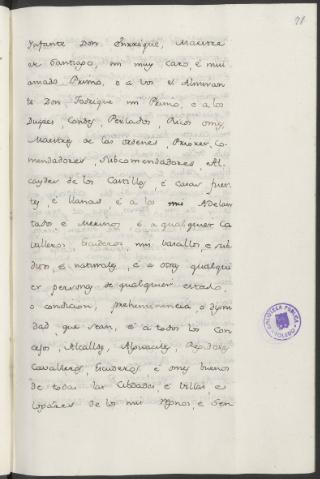 78
Infante Don Enrrique, Maestre
de Santiago, mi muy caro, é mui
amado Primo, e a vos el Almiran
te Don Fadrique mi Primo, e a los
Duques Condes Perlados, Ricos omes,
Maestres de las Ordenes, Priores, Co-
mendadores, Subcomendadores, Al
caydes de los Castillos, é casas fuer
tes, é llanas é a los mis Adelan
tados é Merinos é a qualquier Ca
valleros, Escuderos, mis vasallos, e sub
ditos, e naturales, e a otras qualqui
er personas de qualquier estado,
o condicion, preheminencia, o digni
dad que sean, é a todos los Con
cejos, Alcalldes, Alguaciles, Regidores
Cavalleros, Escuderos, e omes buenos
de todas las Cibdades, é Villas, e
logares de los mis Regnos, é Sen